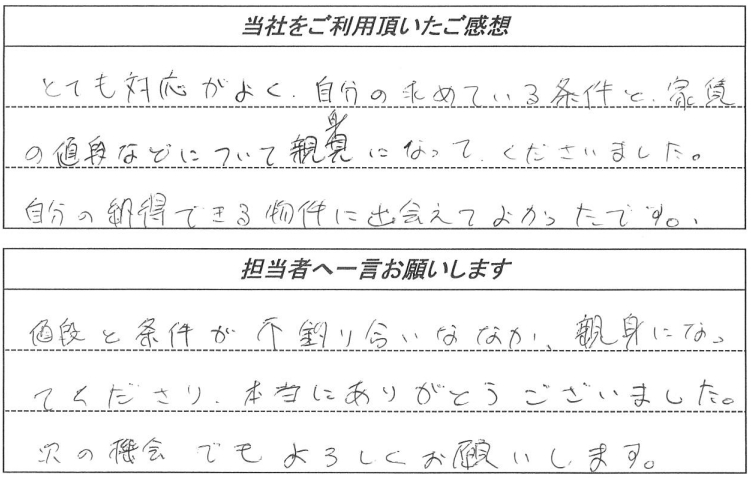 当社をご利用頂いたご感想
とても対応がよく、自分の求めている条件と、家賃
の値段などについて親身になって、くださいました。
自分の納得できる物件に出会えてよかったです。
担当者へ一言お願いします
値段と条件が不釣り合いななか、親身になっ
てくださり、本当にありがとうございました。
次の機会でもよろしくお願いします。